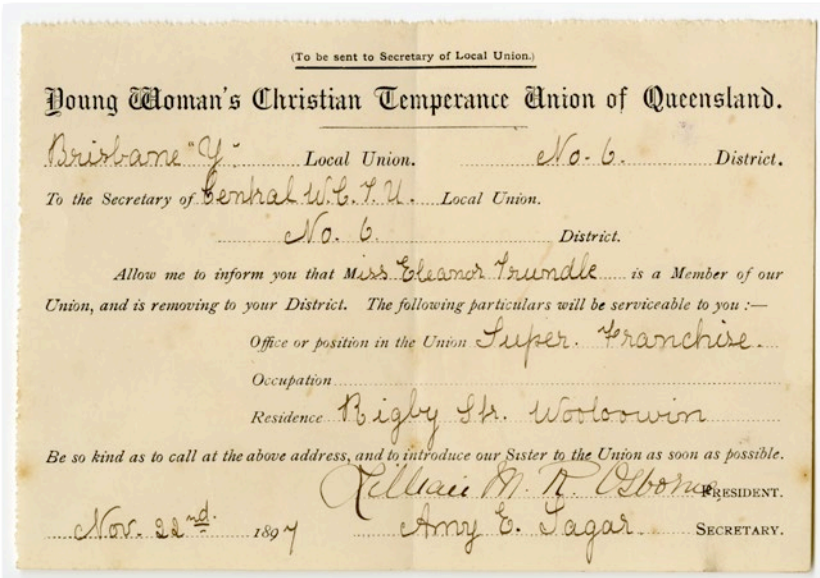 (To be sent to Secretary of Local Union.)
Young Woman's Christian Temperance Union of Queensland.
Brisbane "Y" Local Union. No. 6. District.
To the Secretary of Central W.C.T.U. Local Union.
No. 6. District.
Allow me to inform you that Miss Eleanor Trundle is a Member of our
Union, and is removing to your District. The following particulars will be serviceable to you :—
Office or position in the Union Super. Franchise.
Occupation
Residence Rigby Str. Wooloowin
Be so kind as to call at the above address, and to introduce our Sister to the Union as soon as possible.
Lillian M. R. Osborne PRESIDENT.
Nov. 22nd. 1897 Amy E. Sagar. SECRETARY.